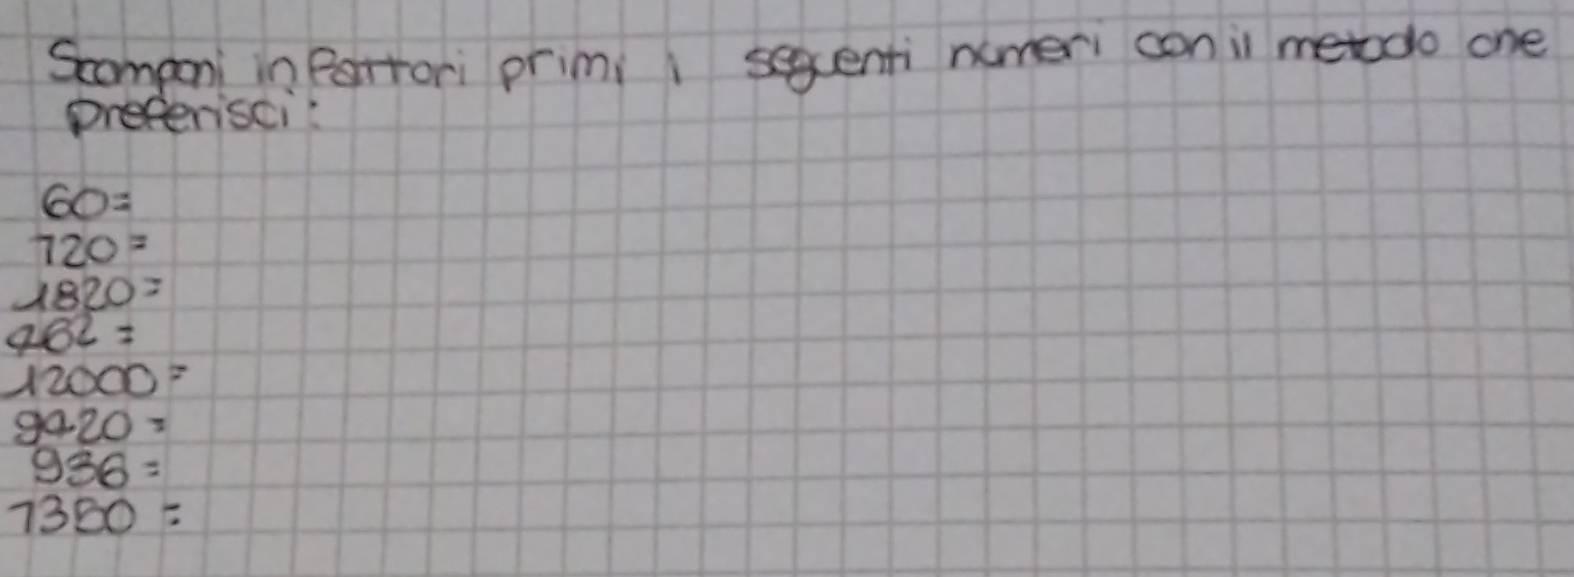 Scomponi in fattori primi i seguenti numeri con il metodo che
preferisci:
60=
720=
1820=
462=
12000=
9420=
936=
7350=